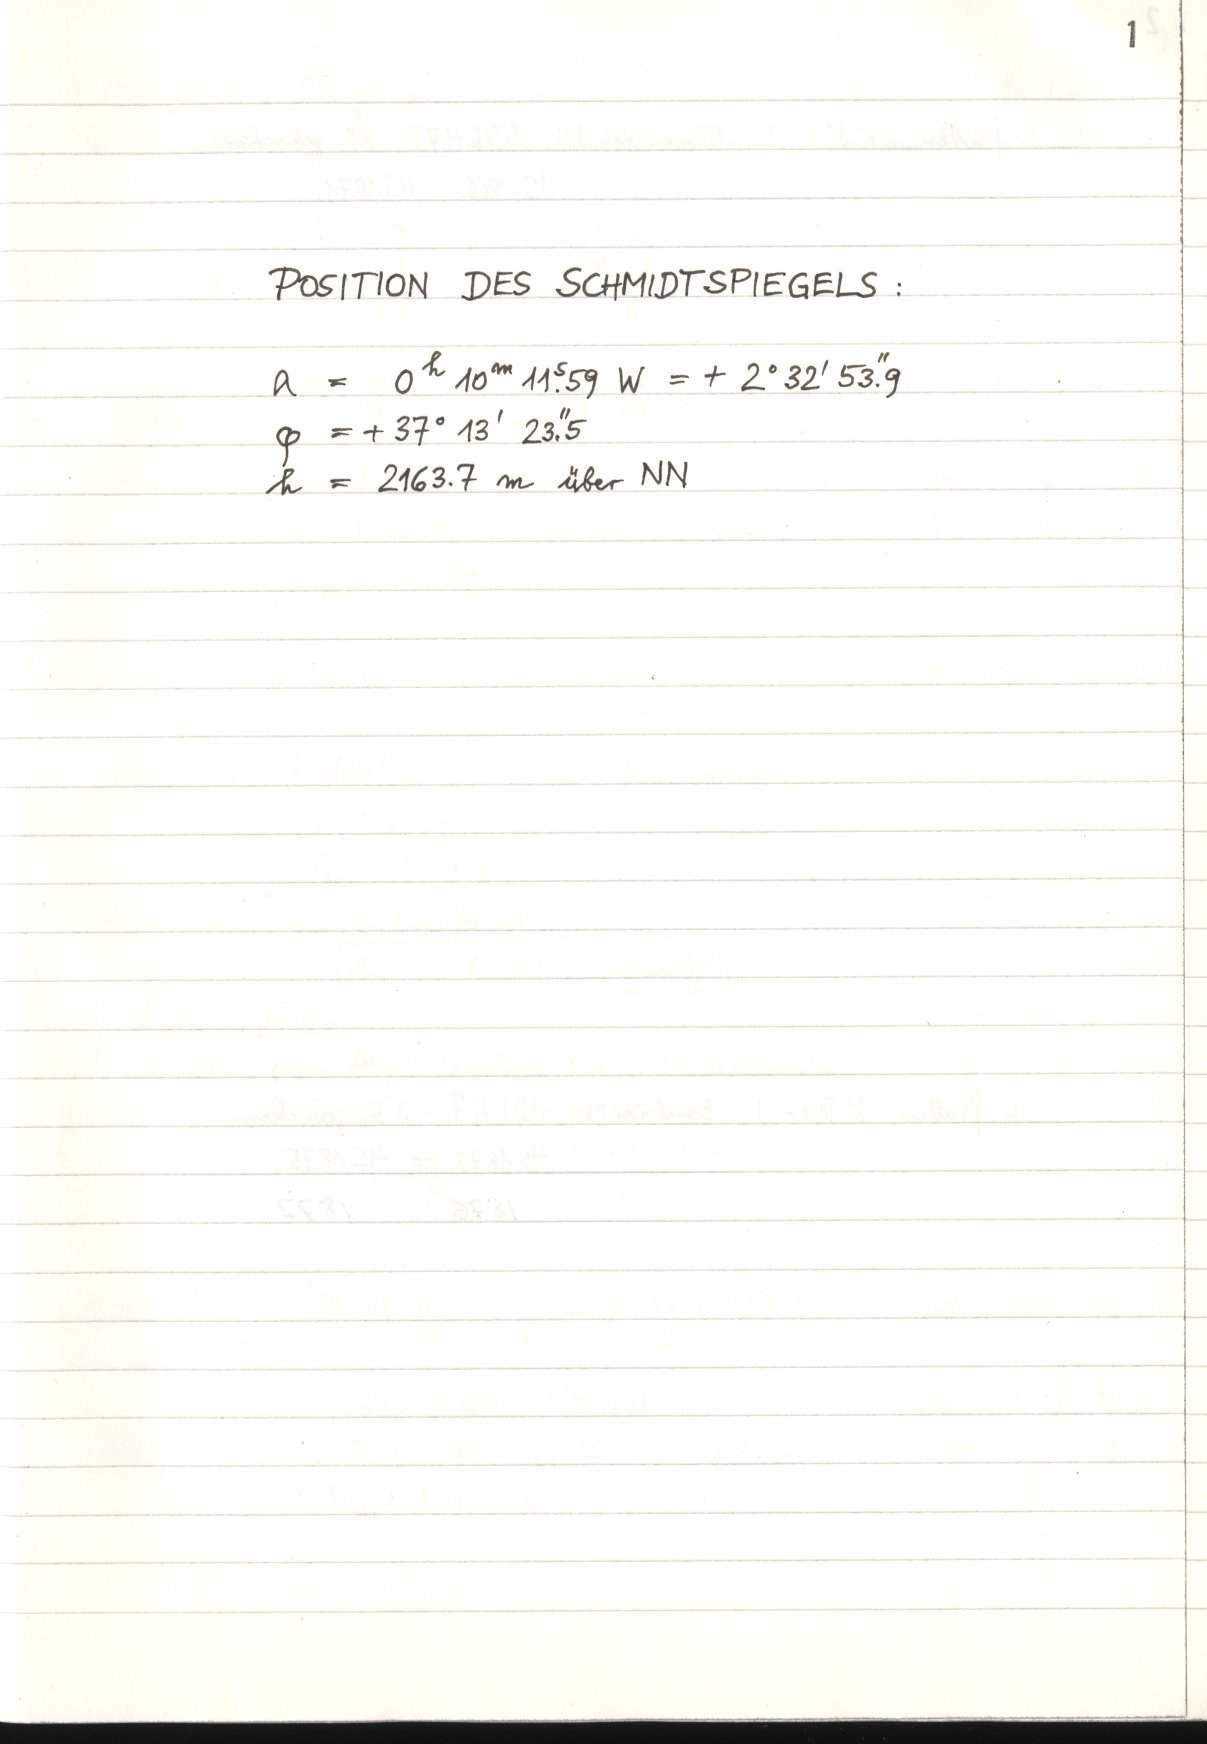 1
POSITION DES SCHMIDTSPIEGELS :
λ = 0ʰ 10ᵐ 11.ˢ59 W = + 2° 32' 53."9
φ = + 37° 13' 23."5
h = 2163.7 m über NN